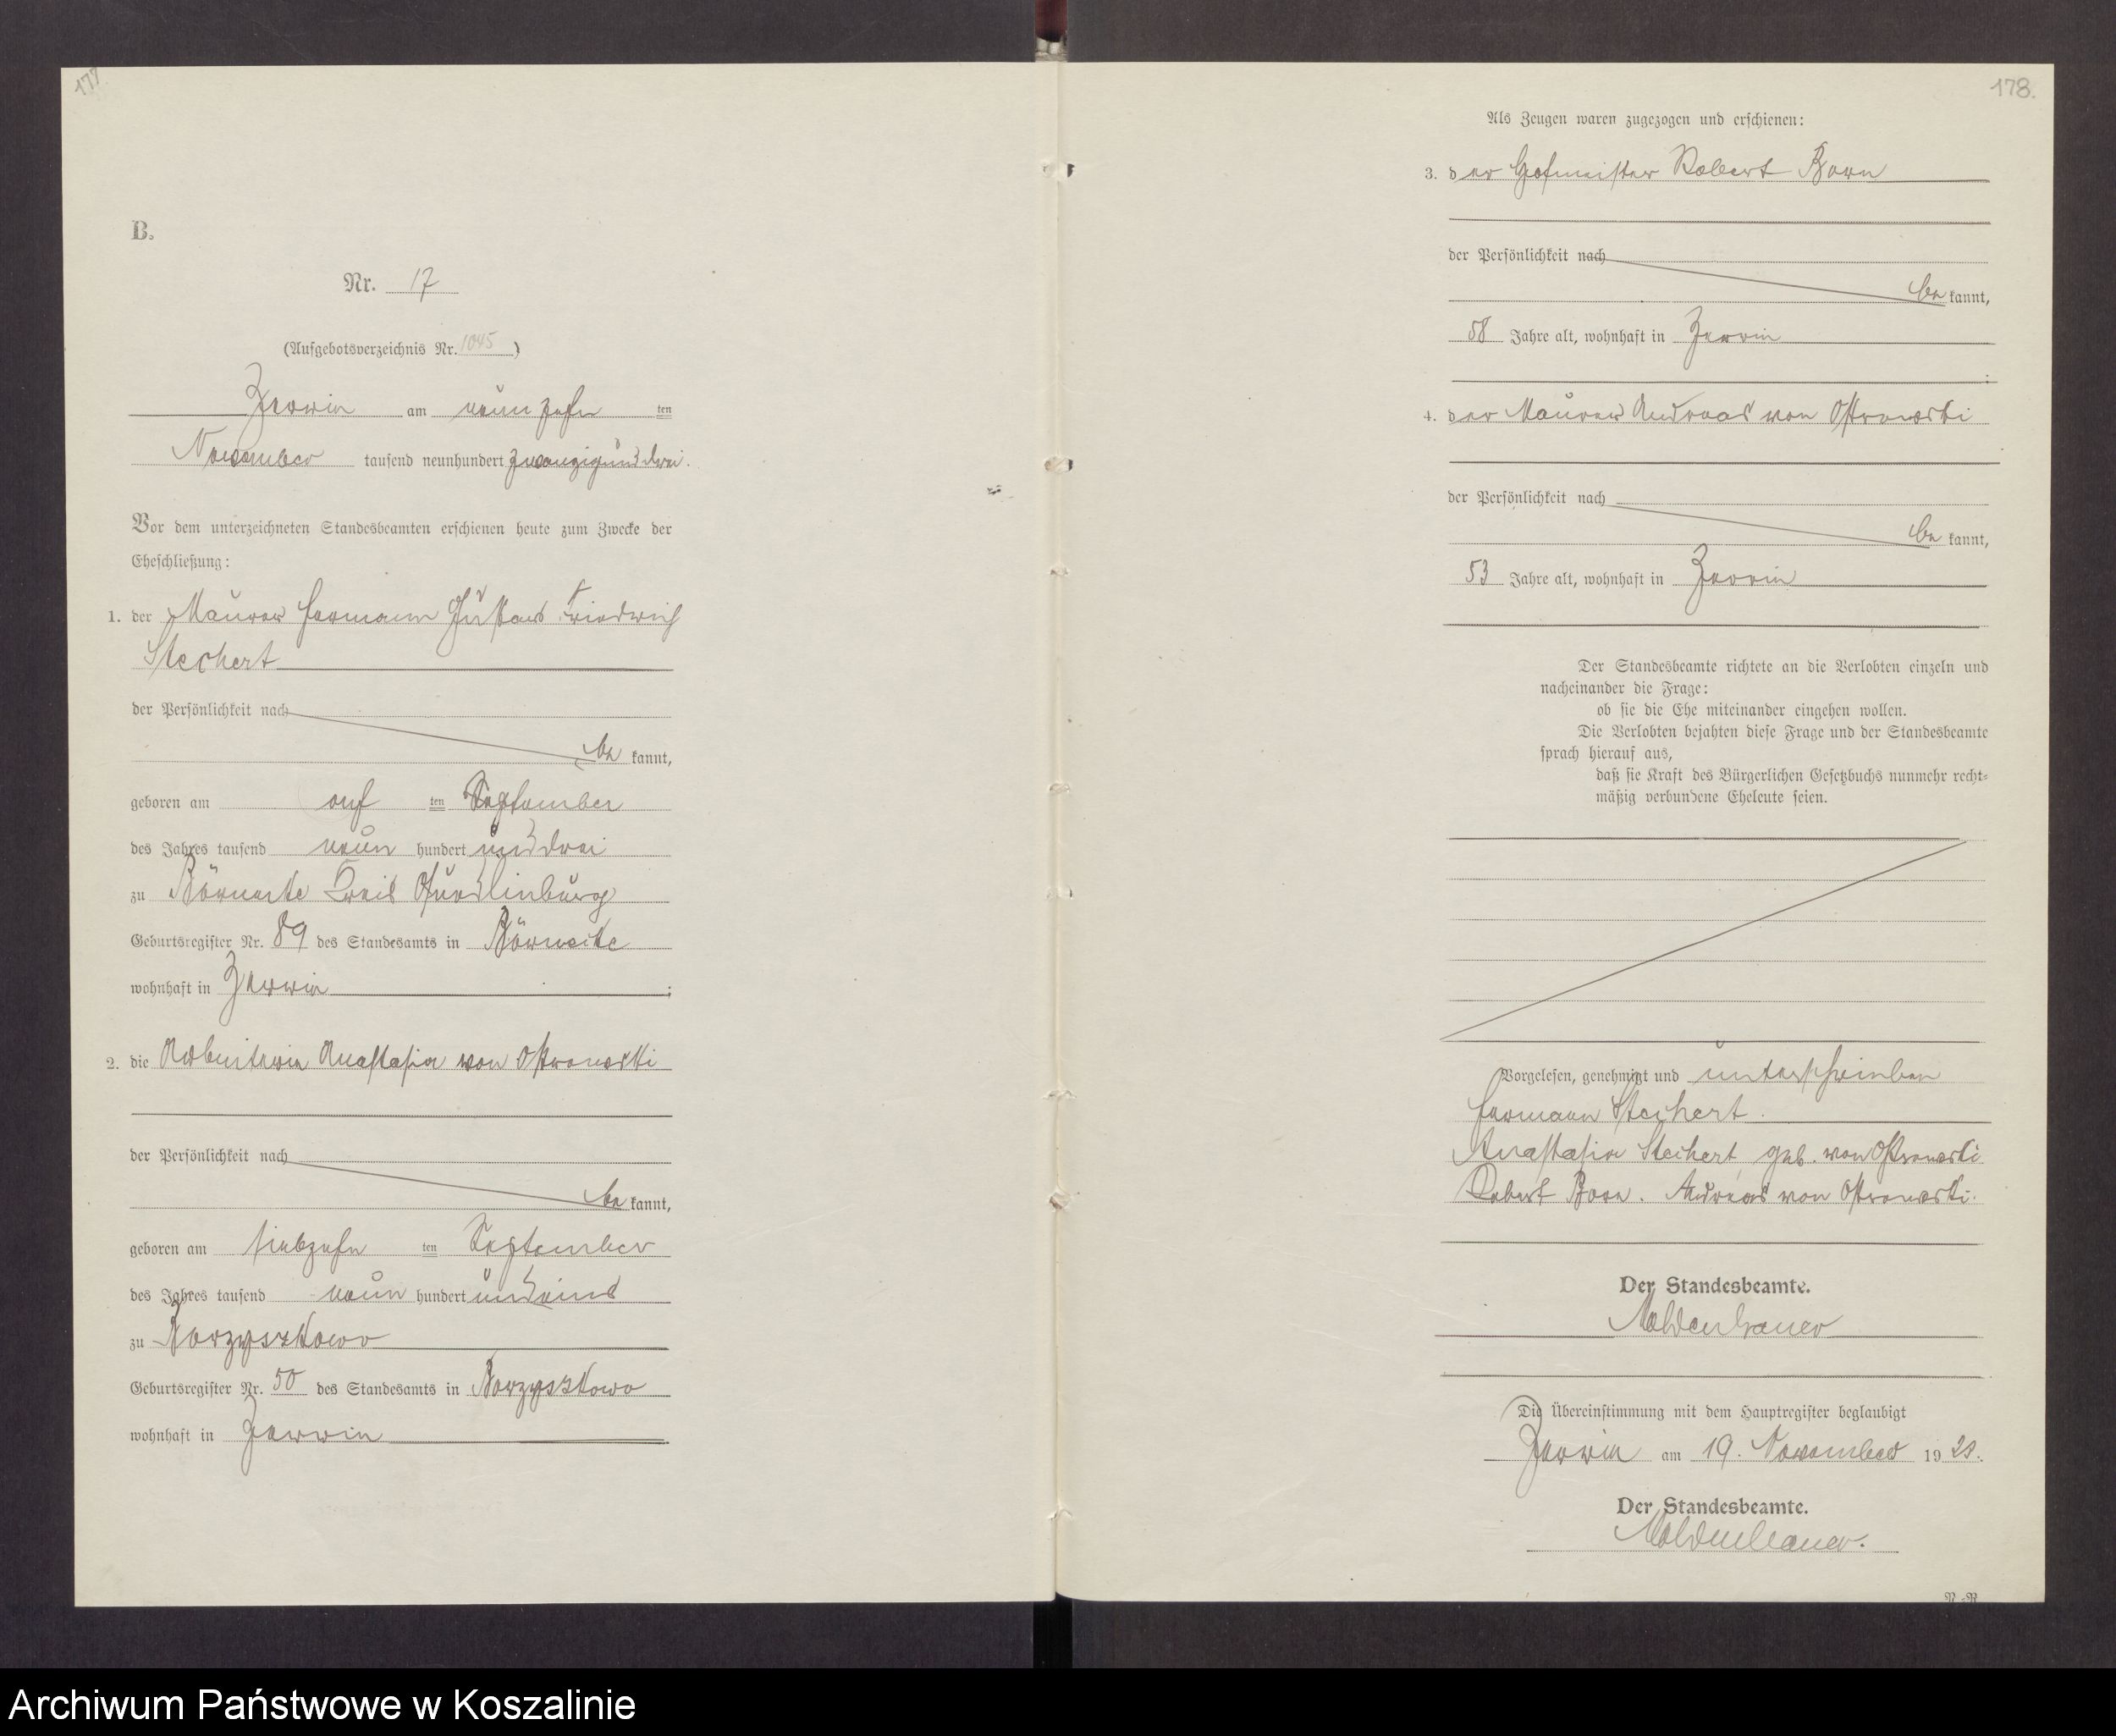 177
B.
Nr. 17
(Aufgebotsverzeichnis Nr. 1045)
Zerrin am neunzehn ten
November tausend neunhundert zwanzigunddrei.
Vor dem unterzeichneten Standesbeamten erschienen heute zum Zwecke der
Eheschließung:
1. der Maurer Hermann Gustav Friedrich
Stechert
der Persönlichkeit nach
be kannt,
geboren am ten September
des Jahres tausend neun hundert und drei
zu Börnecke Kreis Quedlinburg
Geburtsregister Nr. 89 des Standesamts in Börnecke
wohnhaft in Zerrin;
2. die Arbeiterin Anastasia von Ostrowski
der Persönlichkeit nach
be kannt,
geboren am siebzehn ten September
des Jahres tausend neun hundert und eins
zu Borzyszkowo
Geburtsregister Nr. 50 des Standesamts in Borzyszkowo
wohnhaft in Zerrin
178.
Als Zeugen waren zugezogen und erschienen:
3. der Hofmeister Robert Born
der Persönlichkeit nach
be kannt,
58 Jahre alt, wohnhaft in Zerrin
;
4. der Maurer Andreas von Ostrowski
der Persönlichkeit nach
be kannt,
53 Jahre alt, wohnhaft in Zerrin
Der Standesbeamte richtete an die Verlobten einzeln und
nacheinander die Frage:
ob sie die Ehe miteinander eingehen wollen.
Die Verlobten bejahten diese Frage und der Standesbeamte
sprach hierauf aus,
daß sie Kraft des Bürgerlichen Gesetzbuchs nunmehr recht-
mäßig verbundene Eheleute seien.
Vorgelesen, genehmigt und unterschrieben
Hermann Stechert.
Anastasia Stechert geb. von Ostrowski
Robert Born. Andreas von Ostrowski.
Der Standesbeamte.
Moldenhauer
Die Übereinstimmung mit dem Hauptregister beglaubigt
Zerrin am 19. November 19 23.
Der Standesbeamte.
Moldenhauer.
Archiwum Państwowe w Koszalinie